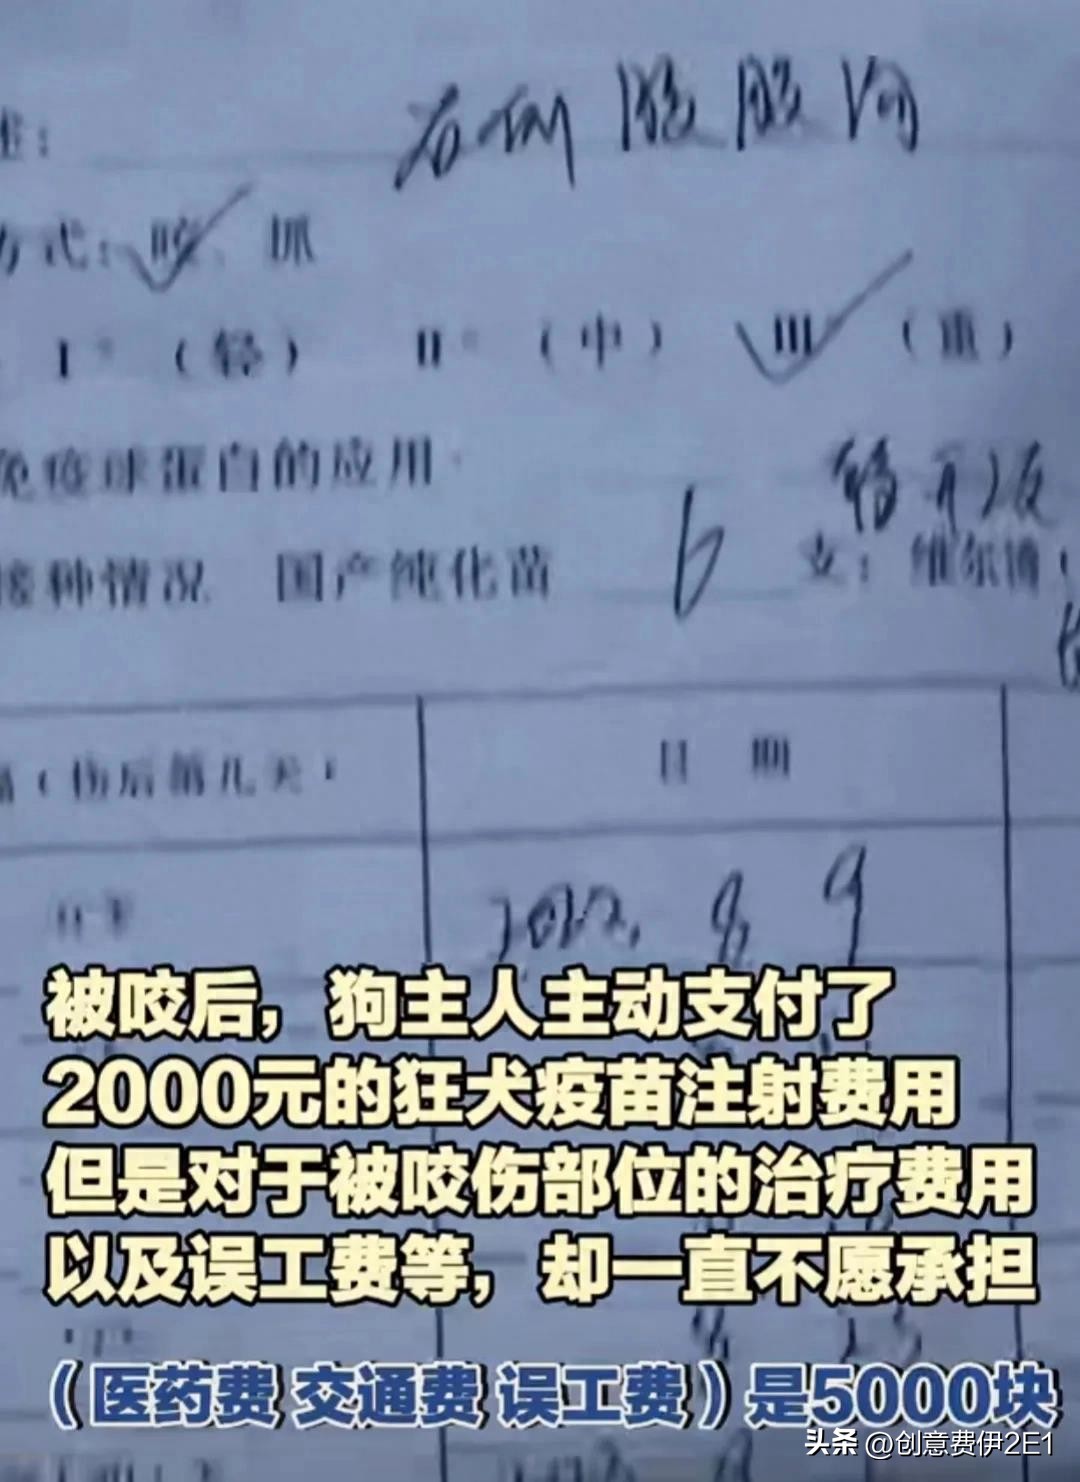 述：
右侧腹股沟
方式：咬、抓
I°（轻） II°（中） III°（重）
免疫球蛋白的应用
接种情况 国产纯化苗 6 支：维尔博：
（伤后第几天） 日 期
当天 2022. 8. 9
被咬后，狗主人主动支付了
2000元的狂犬疫苗注射费用
但是对于被咬伤部位的治疗费用
以及误工费等，却一直不愿承担
8 23
（医药费 交通费 误工费）是5000块
头条 @创意费伊2E1